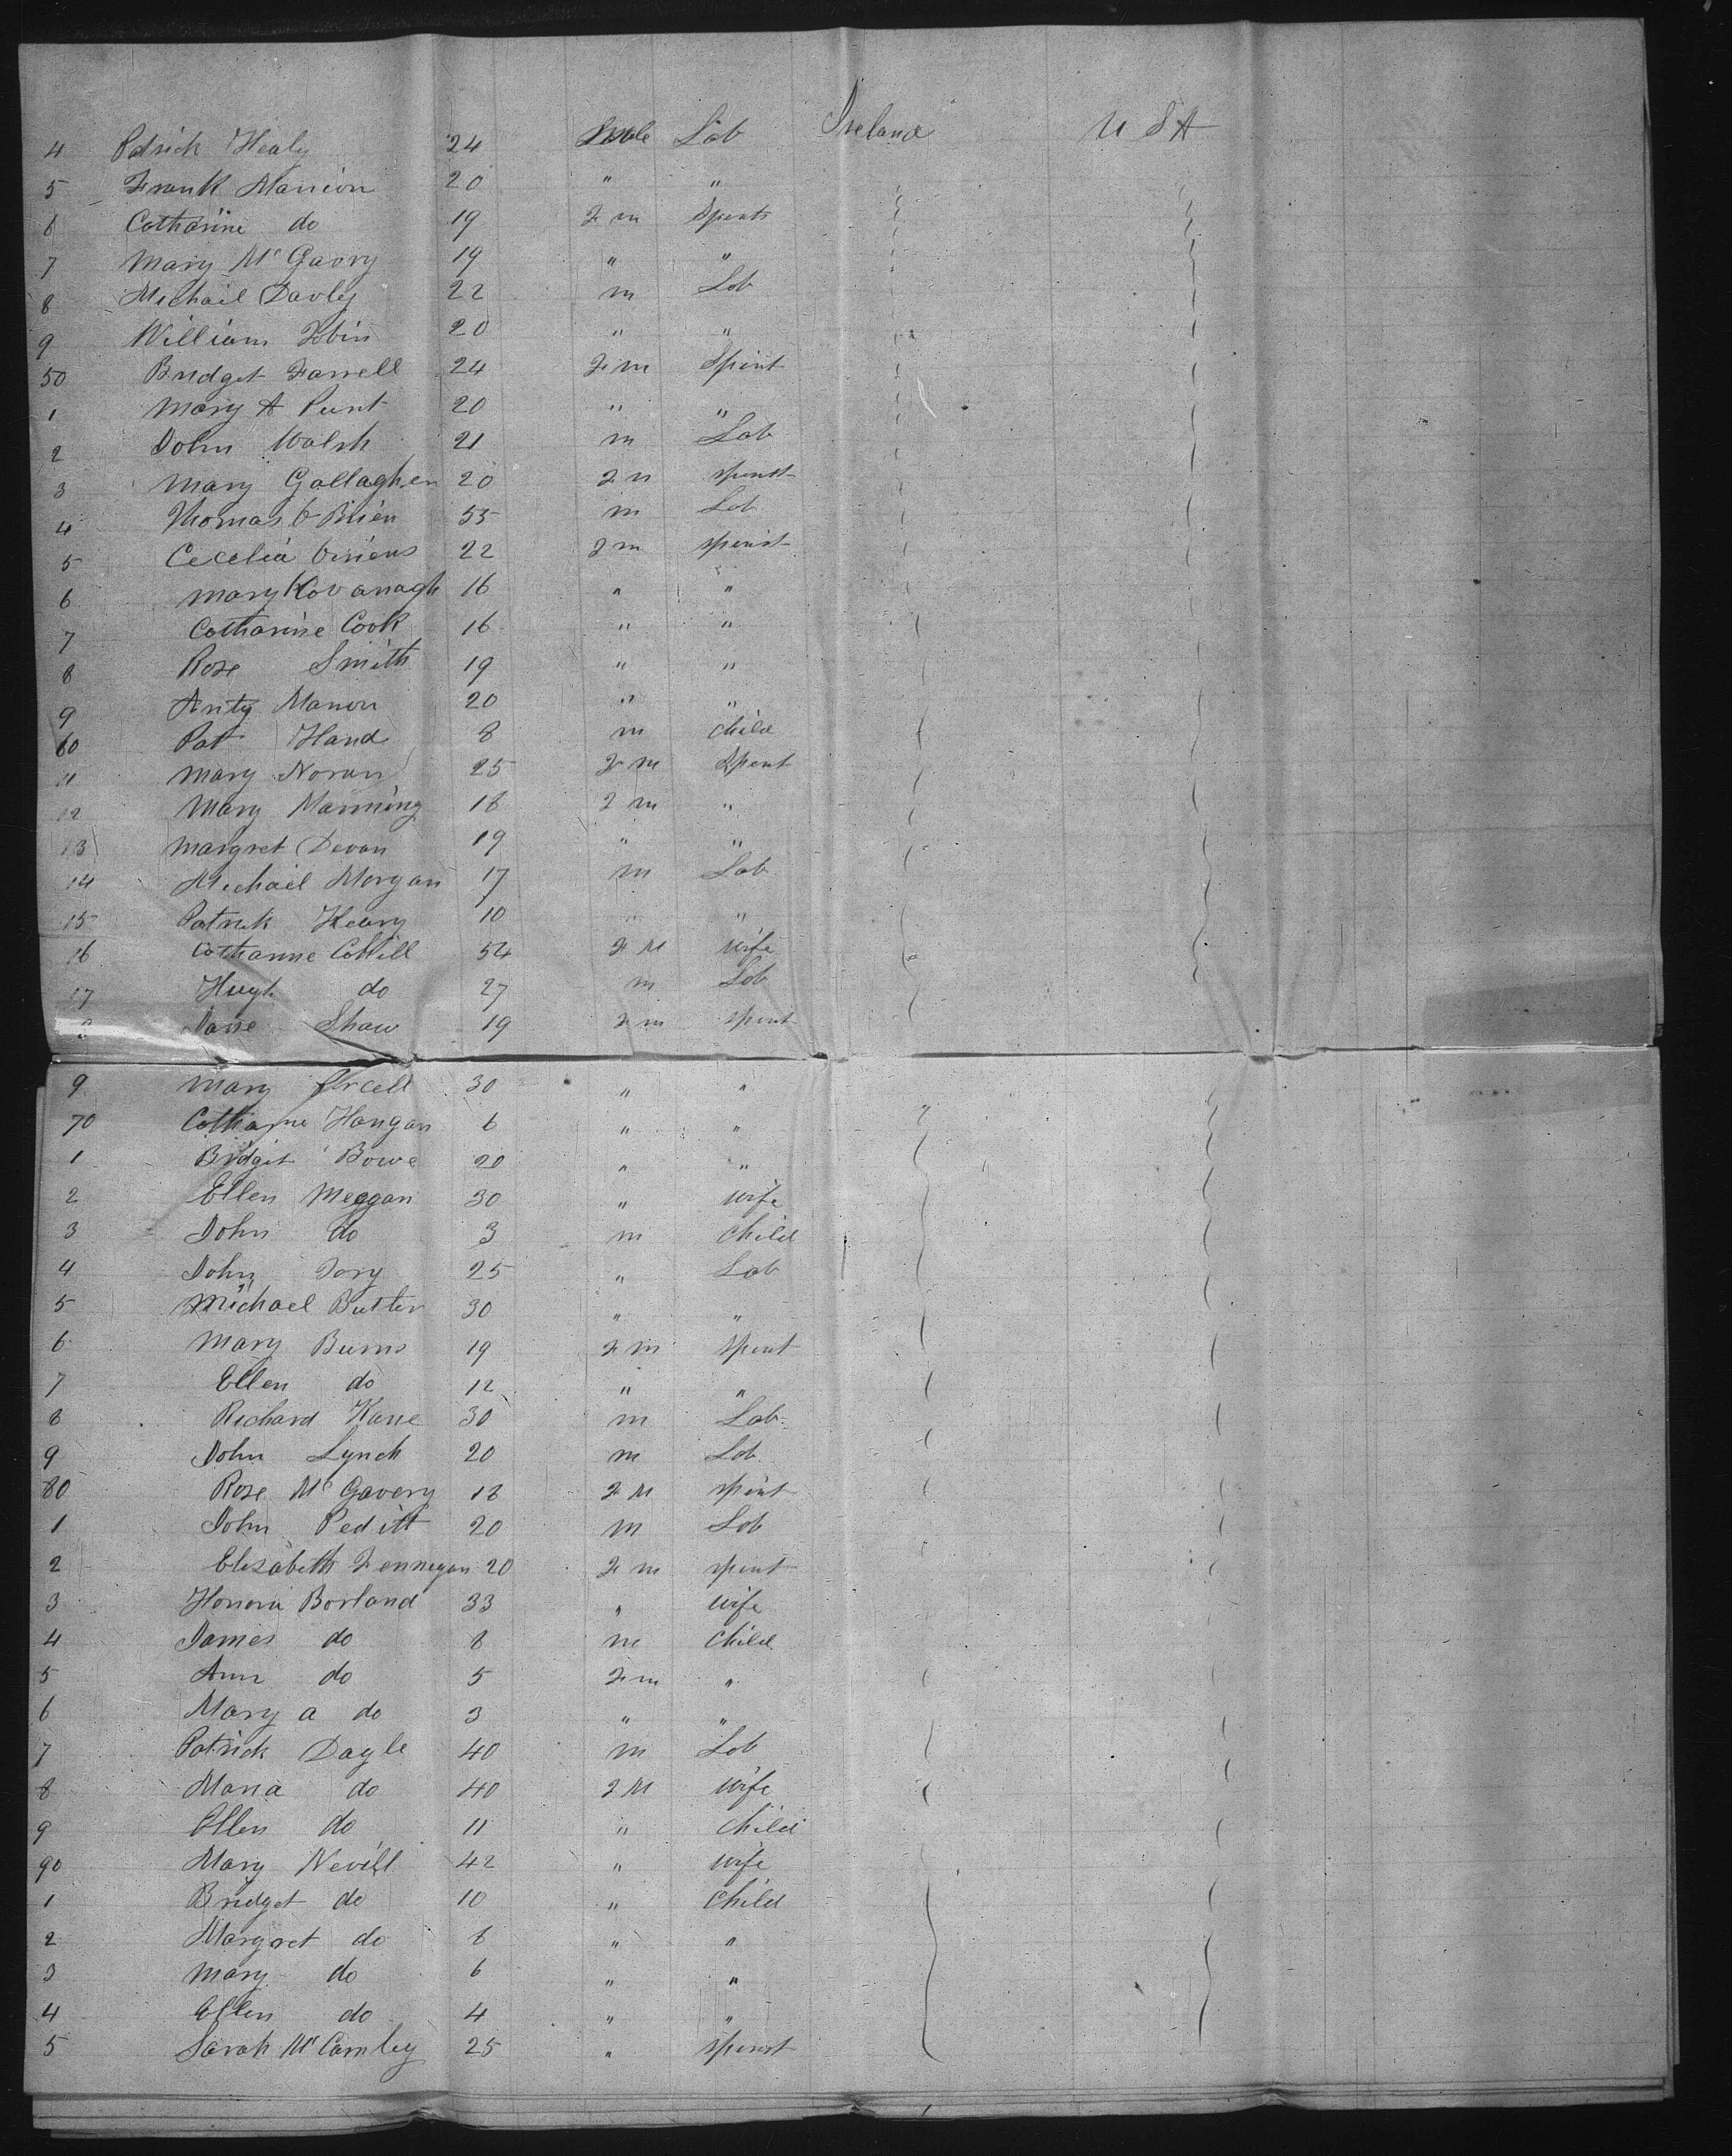 4 Patrick Healy 24 Male Lab Ireland U S A
5 Frank Manion 20 " "
6 Catharine do 19 Fm Spinst
7 Mary McGavry 19 " "
8 Michail Davly 22 m Lab
9 William Tobin 20 " "
50 Bridget Farrell 24 Fm Spinst
1 Mary A Punt 20 " "
2 John Walsh 21 m Lab
3 Mary Gallagher 20 Fm spinst
4 Thomas O Brien 55 m Lab
5 Cecelia 22 Fm spinst
6 Mary Kavanagh 16 " "
7 Catharine Cook 16 " "
8 Rose Smith 19 " "
9 Anty Manion 20 " "
60 Pat Hand 8 m child
11 Mary Noran 25 Fm Spinst
12 Mary Manning 18 Fm "
13 Margret Devan 19 " "
14 Michael Morgan 17 m Lab
15 Patrick Keary 10 " "
16 Catharine Cahill 54 Fm wife
17 Hugh do 27 m Lab
Jane Shaw 19 Fm spinst
9 Mary 30 " "
70 Catharine Hangan 6 " "
1 Bridgit Bowe 20 " "
2 Ellen Meggan 30 " wife
3 John do 3 m child
4 John Tory 25 " Lab
5 Michael Butler 30 " "
6 Mary Burns 19 Fm spinst
7 Ellen do 12 " "
8 Richard Kane 30 m Lab
9 John Lynch 20 m Lab
80 Rose McGavery 18 Fm spinst
1 John Peditt 20 m Lab
2 Elizabeth Fennegan 20 Fm spinst
3 Honora Borland 33 " wife
4 James do 8 m child
5 Ann do 5 Fm "
6 Mary a do 3 " "
7 Patrick Dagle 40 m Lab
8 Maria do 40 Fm wife
9 Ellen do 11 " child
90 Mary Nevill 42 " wife
1 Bridget do 10 " child
2 Margret do 8 " "
3 Mary do 6 " "
4 Ellen do 4 " "
5 Sarah McCamley 25 " spinst